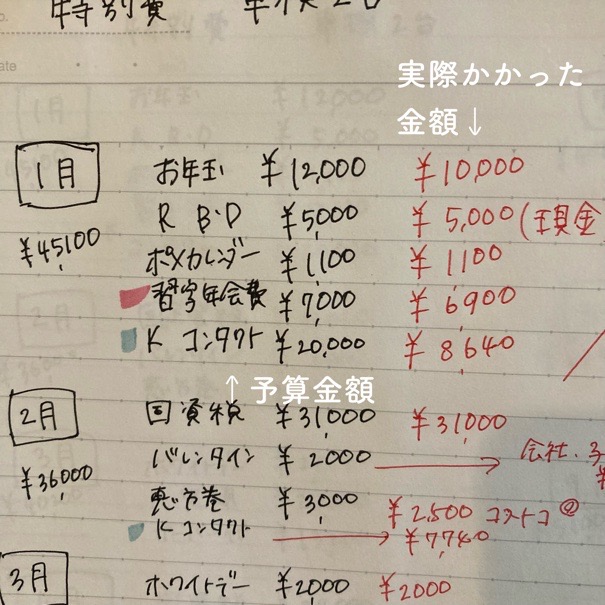 特別費 車検2台
実際かかった
金額↓
1月 お年玉 ¥12,000 ¥10,000
R B・D ¥5,000 ¥5,000(現金
¥45,100 ポメカレンダー ¥1,100 ¥1100
習字年会費 ¥7,000 ¥6,900
K コンタクト ¥20,000 ¥8,640
↑予算金額
2月 固資税 ¥31,000 ¥31,000
バレンタイン ¥2000 → 会社、
¥36,000 恵方巻 ¥3,000 ¥2,500 コストコ
K コンタクト → ¥7,740
3月 ホワイトデー ¥2,000 ¥2000